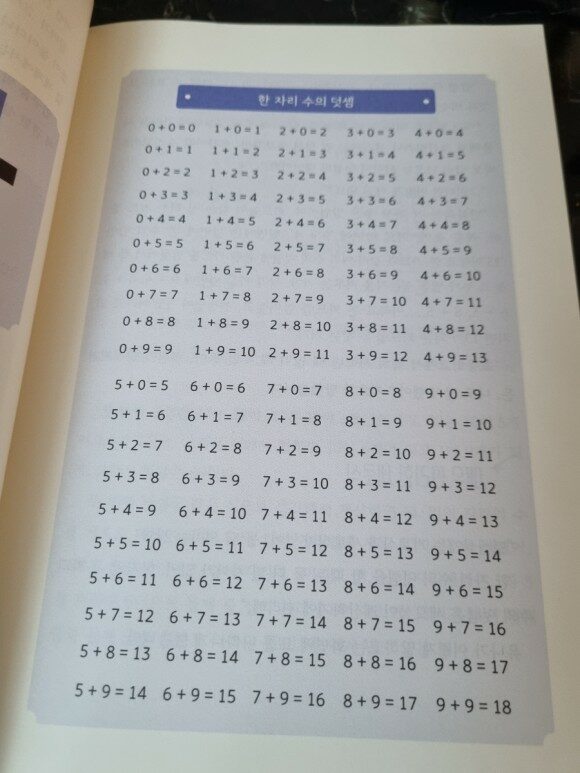 한 자리 수의 덧셈
0+0=0 1+0=1 2+0=2 3+0=3 4+0=4
0+1=1 1+1=2 2+1=3 3+1=4 4+1=5
0+2=2 1+2=3 2+2=4 3+2=5 4+2=6
0+3=3 1+3=4 2+3=5 3+3=6 4+3=7
0+4=4 1+4=5 2+4=6 3+4=7 4+4=8
0+5=5 1+5=6 2+5=7 3+5=8 4+5=9
0+6=6 1+6=7 2+6=8 3+6=9 4+6=10
0+7=7 1+7=8 2+7=9 3+7=10 4+7=11
0+8=8 1+8=9 2+8=10 3+8=11 4+8=12
0+9=9 1+9=10 2+9=11 3+9=12 4+9=13
5+0=5 6+0=6 7+0=7 8+0=8 9+0=9
5+1=6 6+1=7 7+1=8 8+1=9 9+1=10
5+2=7 6+2=8 7+2=9 8+2=10 9+2=11
5+3=8 6+3=9 7+3=10 8+3=11 9+3=12
5+4=9 6+4=10 7+4=11 8+4=12 9+4=13
5+5=10 6+5=11 7+5=12 8+5=13 9+5=14
5+6=11 6+6=12 7+6=13 8+6=14 9+6=15
5+7=12 6+7=13 7+7=14 8+7=15 9+7=16
5+8=13 6+8=14 7+8=15 8+8=16 9+8=17
5+9=14 6+9=15 7+9=16 8+9=17 9+9=18